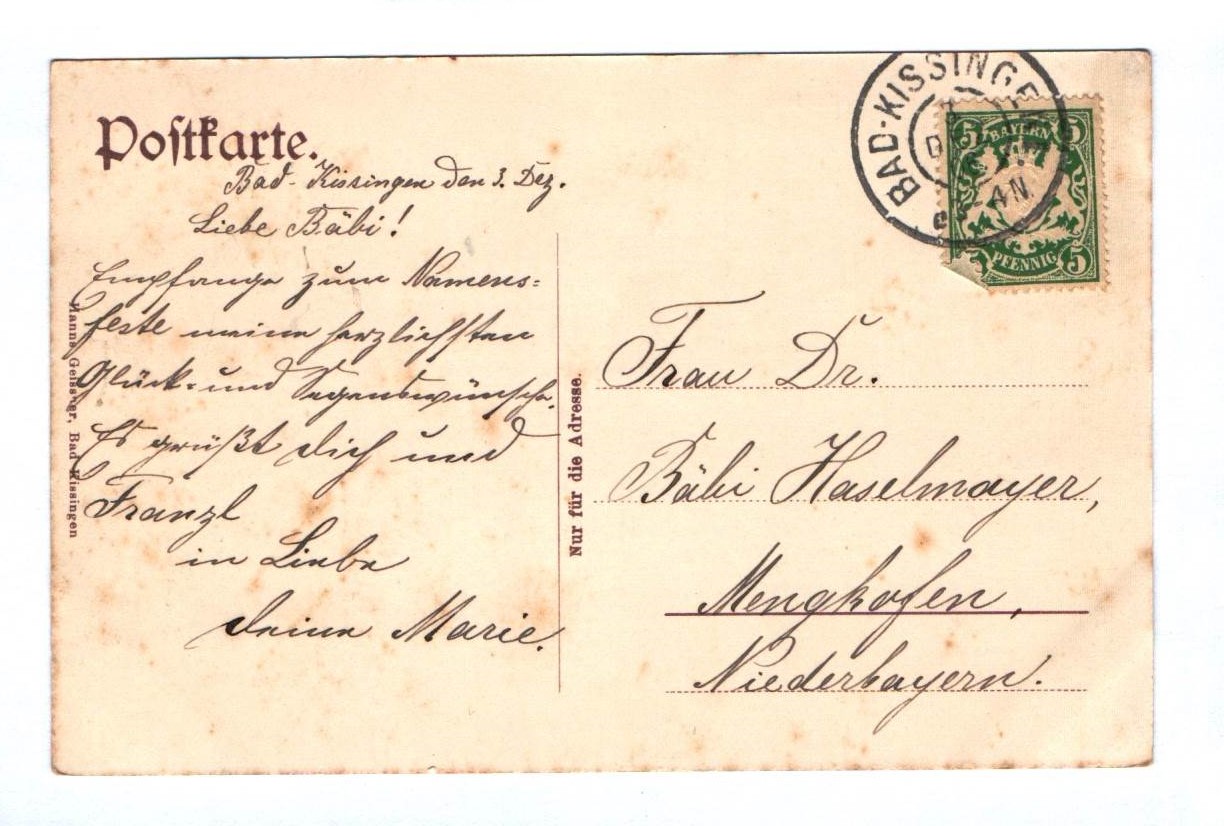 Postkarte.
Bad-Kissingen den 3. Dez.
Liebe Bäbi!
Empfange zum Namens=
feste meine herzlichsten
Glück- und Segenswünsche.
Es grüßt Dich und
Franzl
in Liebe
Deine Marie.
Hanns Geissner, Bad Kissingen
Nur für die Adresse.
BAD-KISSINGE
5 BAYERN 5
PFENNIG 5
Frau Dr.
Bäbi Haselmayer,
Mengkofen,
Niederbayern.